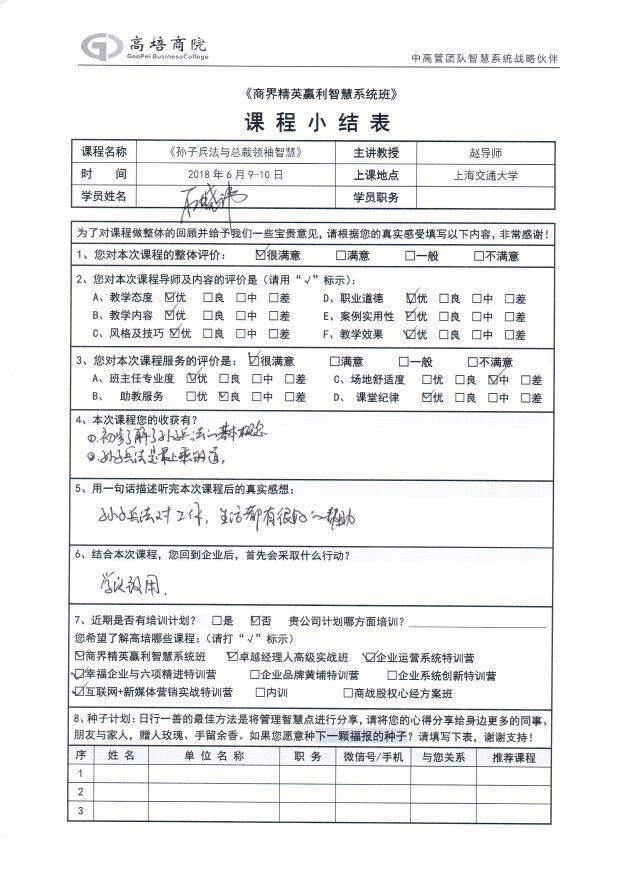 高培商院
GaoPei BusinessCollege
中高管团队智慧系统战略伙伴
《商界精英赢利智慧系统班》
课程小结表
课程名称 《孙子兵法与总裁领袖智慧》 主讲教授 赵导师
时 间 2018 年 6 月 9-10 日 上课地点 上海交通大学
学员姓名 学员职务
为了对课程做整体的回顾并给予我们一些宝贵意见,请根据您的真实感受填写以下内容,非常感谢!
1、您对本次课程的整体评价: ☑很满意 □满意 □一般 □不满意
2、您对本次课程导师及内容的评价是(请用“√”标示):
A、教学态度 ☑优 □良 □中 □差 D、职业道德 ☑优 □良 □中 □差
B、教学内容 ☑优 □良 □中 □差 E、案例实用性 ☑优 □良 □中 □差
C、风格及技巧 ☑优 □良 □中 □差 F、教学效果 ☑优 □良 □中 □差
3、您对本次课程服务的评价是: ☑很满意 □满意 □一般 □不满意
A、班主任专业度 ☑优 □良 □中 □差 C、场地舒适度 □优 □良 ☑中 □差
B、 助教服务 □优 ☑良 □中 □差 D、课堂纪律 ☑优 □良 □中 □差
4、本次课程您的收获有?
①.初步了解了孙子兵法的基本概念
②.孙子兵法是最上乘的道。
5、用一句话描述听完本次课程后的真实感想:
孙子兵法对工作,生活都有很好的帮助
6、结合本次课程,您回到企业后,首先会采取什么行动?
学以致用.
7、近期是否有培训计划? □是 ☑否 贵公司计划哪方面培训?
您希望了解高培哪些课程:(请打“√”标示)
☑商界精英赢利智慧系统班 ☑卓越经理人高级实战班 ☑企业运营系统特训营
☑幸福企业与六项精进特训营 □企业品牌黄埔特训营 □企业系统创新特训营
☑互联网+新媒体营销实战特训营 □内训 □商战股权心经方案班
8、种子计划:日行一善的最佳方法是将管理智慧点进行分享,请将您的心得分享给身边更多的同事、
朋友与家人,赠人玫瑰、手留余香。如果您愿意种下一颗福报的种子?请填写下表,谢谢支持!
序 姓 名 单 位 名 称 职 务 微信号/手机 与您关系 推荐课程
1
2
3